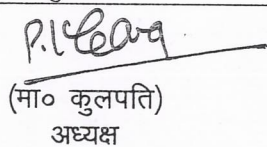 (मा० कुलपति)
अध्यक्ष